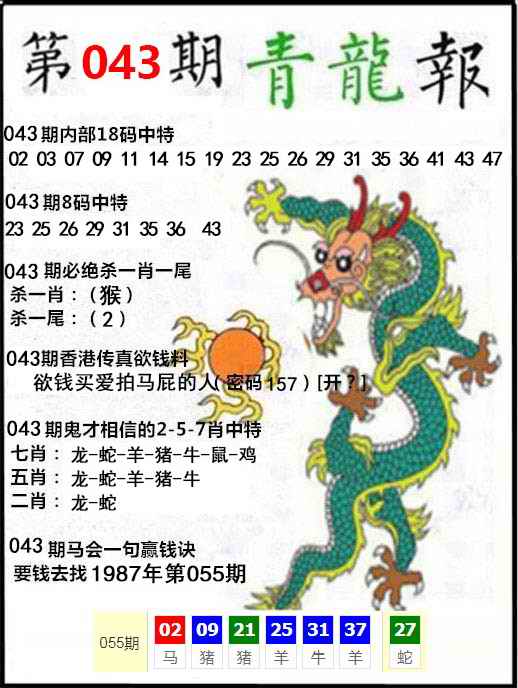 第043期 青龍報
043期内部18码中特
02 03 07 09 11 14 15 19 23 25 26 29 31 35 36 41 43 47
043期8码中特
23 25 26 29 31 35 36 43
043 期必绝杀一肖一尾
杀一肖：（猴）
杀一尾：（2）
043期香港传真欲钱料
欲钱买爱拍马屁的人（密码157）[开？]
043期鬼才相信的2-5-7肖中特
七肖： 龙-蛇-羊-猪-牛-鼠-鸡
五肖： 龙-蛇-羊-猪-牛
二肖： 龙-蛇
043 期马会一句赢钱诀
要钱去找1987年第055期
055期 02 09 21 25 31 37 27
马 猪 猪 羊 牛 羊 蛇